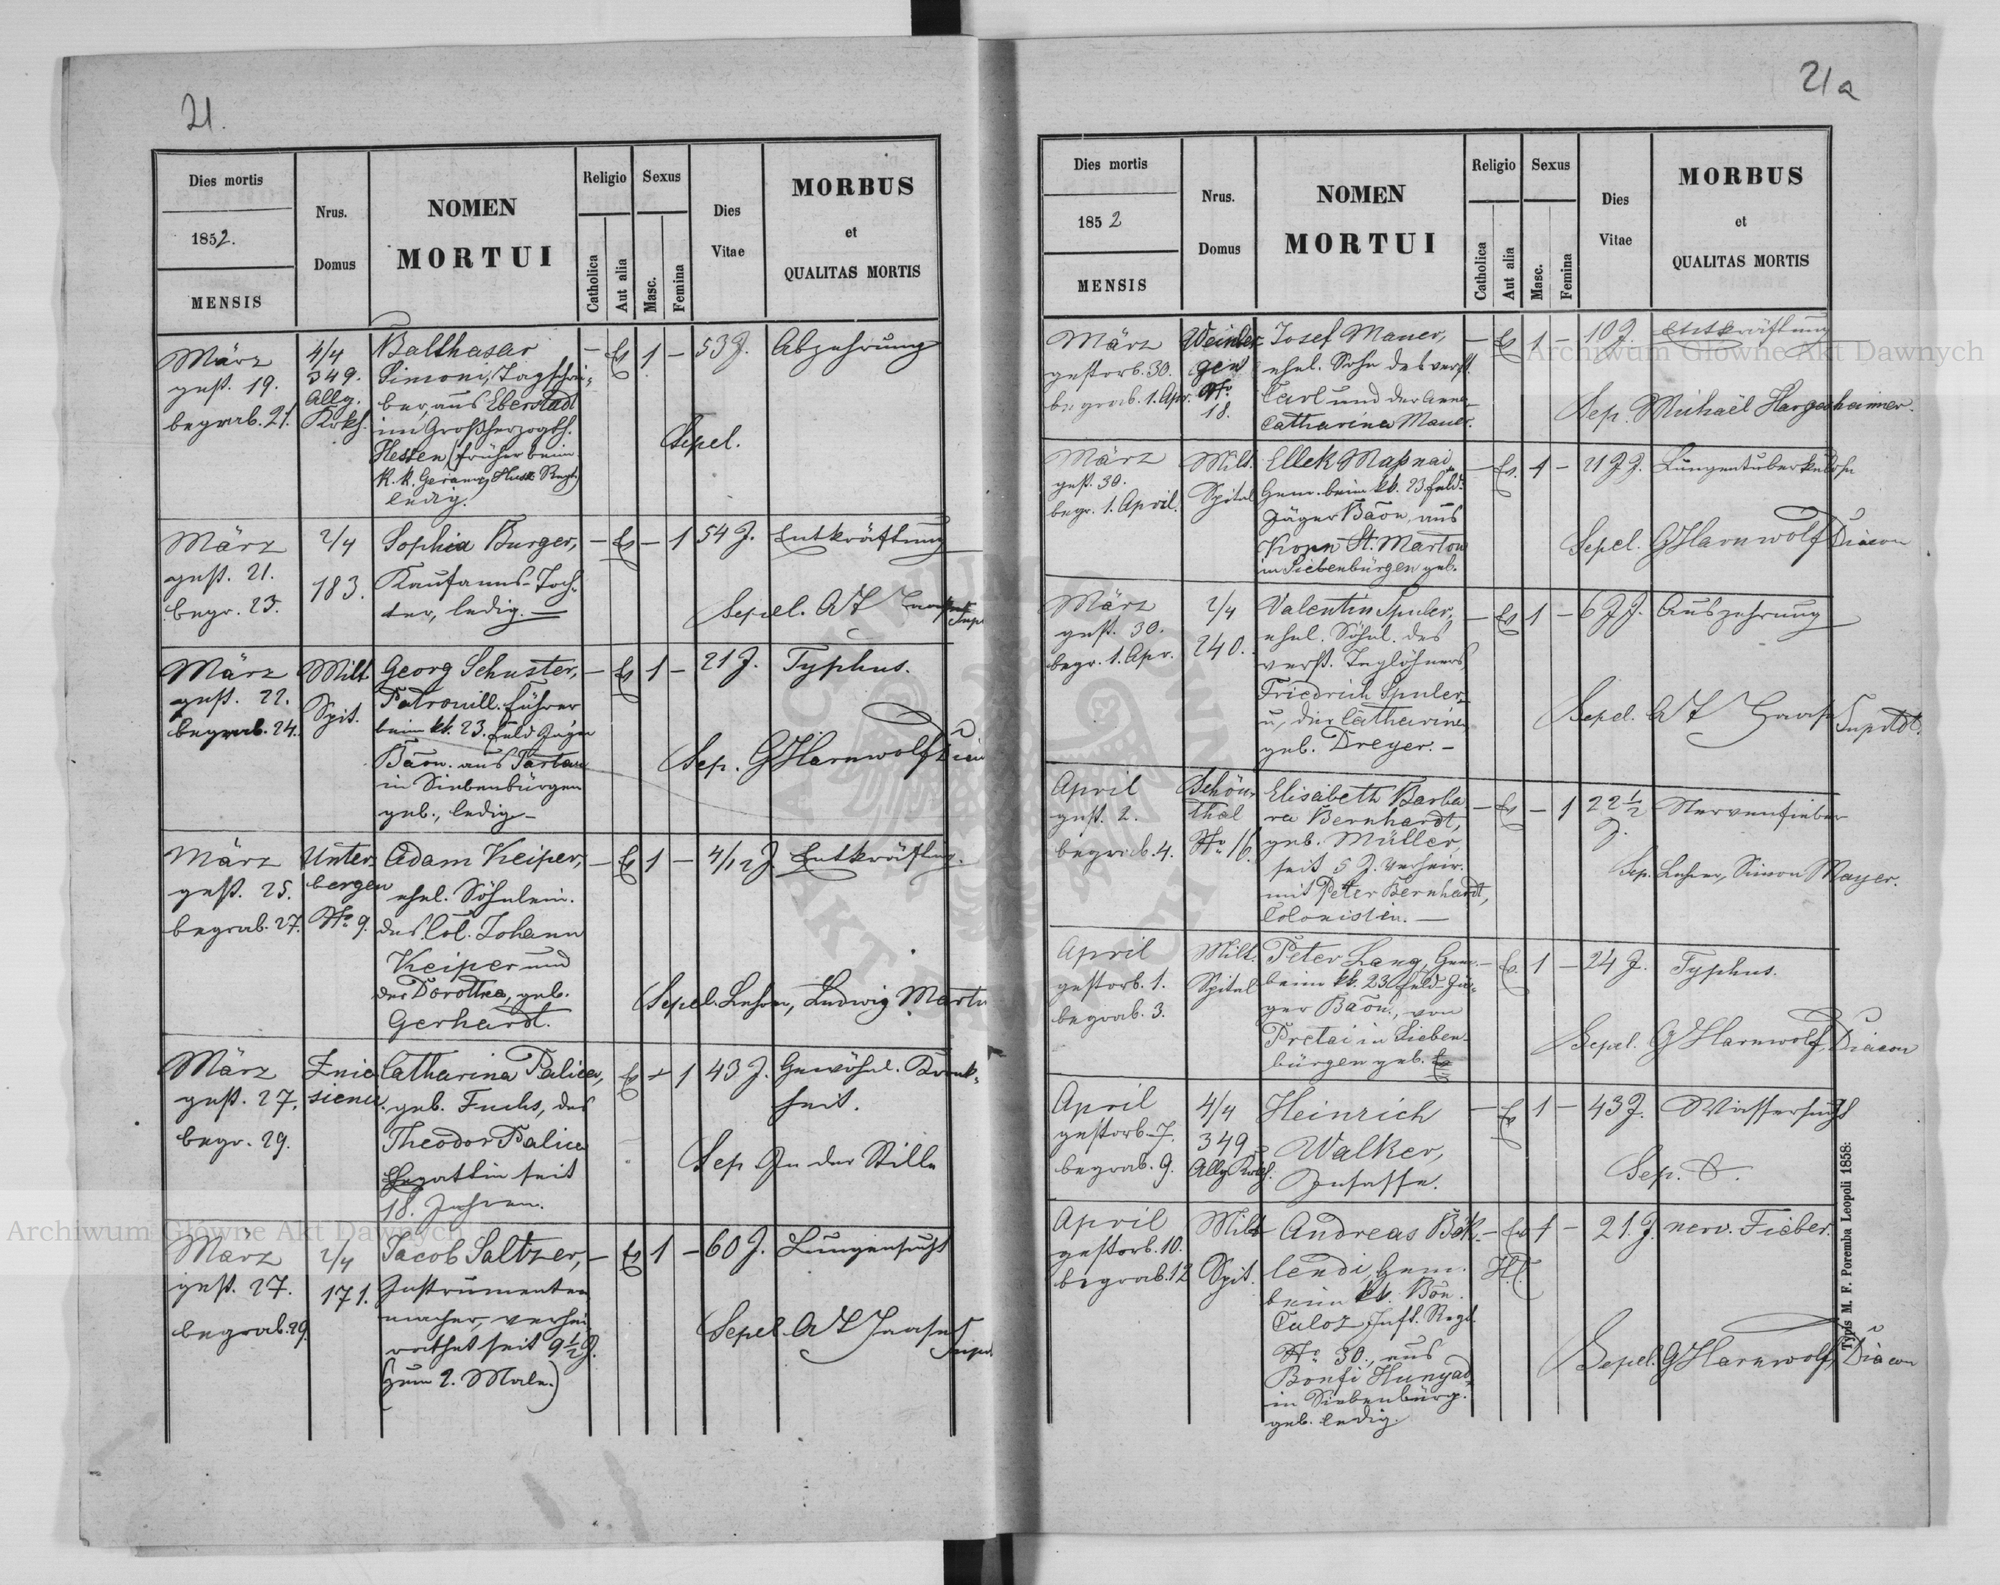 21.
Dies mortis
1852.
MENSIS
Nrus.
Domus
NOMEN
MORTUI
Religio
Catholica
Aut alia
Sexus
Masc.
Femina
Dies
Vitae
MORBUS
et
QUALITAS MORTIS
März
gest. 19.
begrab. 21.
4/4
349.
Allg.
Krkh.
Balthasar
Simoni, Tagschrei-
ber, aus Eberstadt
im Großherzogth.
Hessen, (früher beim
k. k. Husr. Regt.)
ledig.
– Ev 1 – 53 J. Abzehrung
Sepel.
März
gest. 21.
begr. 23.
2/4
183.
Sophia Burger,
Kaufmanns-Toch-
ter, ledig. —
– Ev – 1 54 J. Entkräftung
Sepel. A T Haase Supdt
März
gest. 22.
begrab. 24.
Milt.
Spit.
Georg Schuster,
Patrouill. Führer
beim kk. 23. Feld Jäger
Baon. aus Tartau
in Siebenbürgen
geb., ledig. –
– Ev 1 – 21 J. Typhus.
Sep. G Harnwolf
März
gest. 25.
begrab. 27.
Unter
bergen
No 9.
Adam Keiper,
ehel. Söhnlein.
des Col. Johann
Keiper und
der Dorothea, geb.
Gerhardt.
– Ev 1 – 4/12 J. Entkräftung.
Sepel. Lehrer, Ludwig Martin
März
gest. 27.
begr. 29.
Znie
sienie.
Catharina Palica,
geb. Fuchs, des
Theodor Palica
Ehegattin seit
18. Jahren.
Ev – 1 43 J. Gewöhnl. Krank-
heit.
Sep In der Stille
März
gest. 27.
begrab. 29.
2/4
171.
Jacob Saltzer,
Instrumenten
macher, verhei-
rathet seit 9½ J.
(zum 2. Male.)
– Ev 1 – 60 J. Lungensucht
Sepel. A T Haase Supdt.
21a
Dies mortis
1852
MENSIS
Nrus.
Domus
NOMEN
MORTUI
Religio
Catholica
Aut alia
Sexus
Masc.
Femina
Dies
Vitae
MORBUS
et
QUALITAS MORTIS
März
gestorb. 30.
begrab. 1. Apr.
Weinber-
gen
No
18.
Josef Mauer,
ehel. Sohn des verst.
Carl und der Anna
Catharina Mauer.
– Ev 1 – 10 J. Entkräftung
Sep. Michaël Hargesheimer.
März
gest. 30.
begr. 1. April.
Milt.
Spital
Ellek
Gem. beim kk. 23. Feld-
Jäger Baon, aus
St. Marton
in Siebenbürgen geb.
– Ev. 1 – 21 J. Lungentuberkulose
Sepel. G Harnwolf Diacon
März
gest. 30.
begr. 1. Apr.
2/4
240.
Valentin Spuler,
ehel. Söhnl. des
verst. Taglöhners
Friedrich Spuler
u. der Catharina
geb. Dreyer. –
– Ev 1 – 6 J. Auszehrung
Sepel. A T Haase Supdt.
April
gest. 2.
begrab. 4.
Schön-
thal
No 16.
Elisabeth Barba
ra Bernhardt,
geb. Müller,
seit 5 J. verheir.
mit Peter Bernhardt,
Colonistin. —
– Ev – 1 22½ J. Nervenfieber
Sep. Lehrer, Simon Mayer.
April
gestorb. 1.
begrab. 3.
Milt.
Spital
Peter Lang, Gem.
beim kk. 23. Feld Jä-
ger Baon., von
Pretai in Sieben-
bürgen geb.
– Ev. 1 – 24 J. Typhus.
Sepel. G Harnwolf, Diacon
April
gestorb. 7.
begrab. 9.
4/4
349
Allg Krkh.
Heinrich
Walker,
Insasse.
– Ev 1 – 43 J. Wassersucht
Sep.
April
gestorb. 10.
begrab. 12
Milt
Spit.
Andreas Bök-
lendi, Gem.
beim kk. Bon.
Culoz Inft. Regt.
No 30., aus
Bonfi Hunyad
in Siebenbürg.
geb. ledig.
– Ev 1 – 21. J. nerv. Fieber.
H.C.
Sepel. G Harnwolf, Diacon
Typis M. F. Poremba Leopoli 1858.
Archiwum Główne Akt Dawnych
Archiwum Główne Akt Dawnych